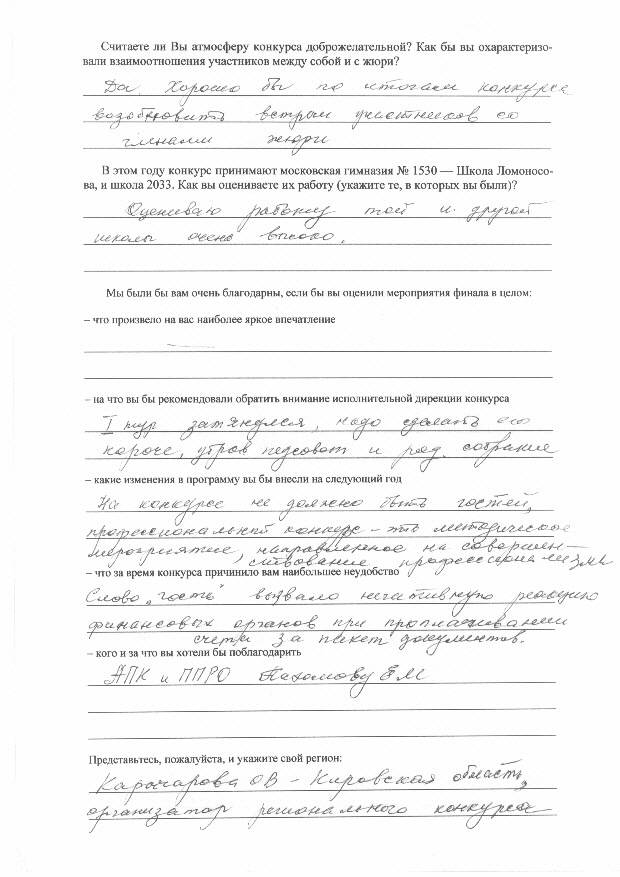 Считаете ли Вы атмосферу конкурса доброжелательной? Как бы вы охарактеризо-
вали взаимоотношения участников между собой и с жюри?
Да. Хорошо бы по итогам конкурса
возобновить встречи участников со
членами жюри
В этом году конкурс принимают московская гимназия № 1530 — Школа Ломоносо-
ва, и школа 2033. Как вы оцениваете их работу (укажите те, в которых вы были)?
Оцениваю работу той и другой
школы очень высоко.
Мы были бы вам очень благодарны, если бы вы оценили мероприятия финала в целом:
– что произвело на вас наиболее яркое впечатление
– на что вы бы рекомендовали обратить внимание исполнительной дирекции конкурса
I тур затянулся, надо сделать его
короче, убрав педсовет и род. собрание
– какие изменения в программу вы бы внесли на следующий год
На конкурсе не должно быть гостей,
профессиональный конкурс – это методическое
мероприятие, направленное на совершен-
ствование профессионализма
– что за время конкурса причинило вам наибольшее неудобство
Слово „гость" вызвало негативную реакцию
финансовых органов при проплачивании
счета за пакет документов.
– кого и за что вы хотели бы поблагодарить
АПК и ППРО Пахомову ЕМ
Представьтесь, пожалуйста, и укажите свой регион:
ОВ – Кировская область,
организатор регионального конкурса